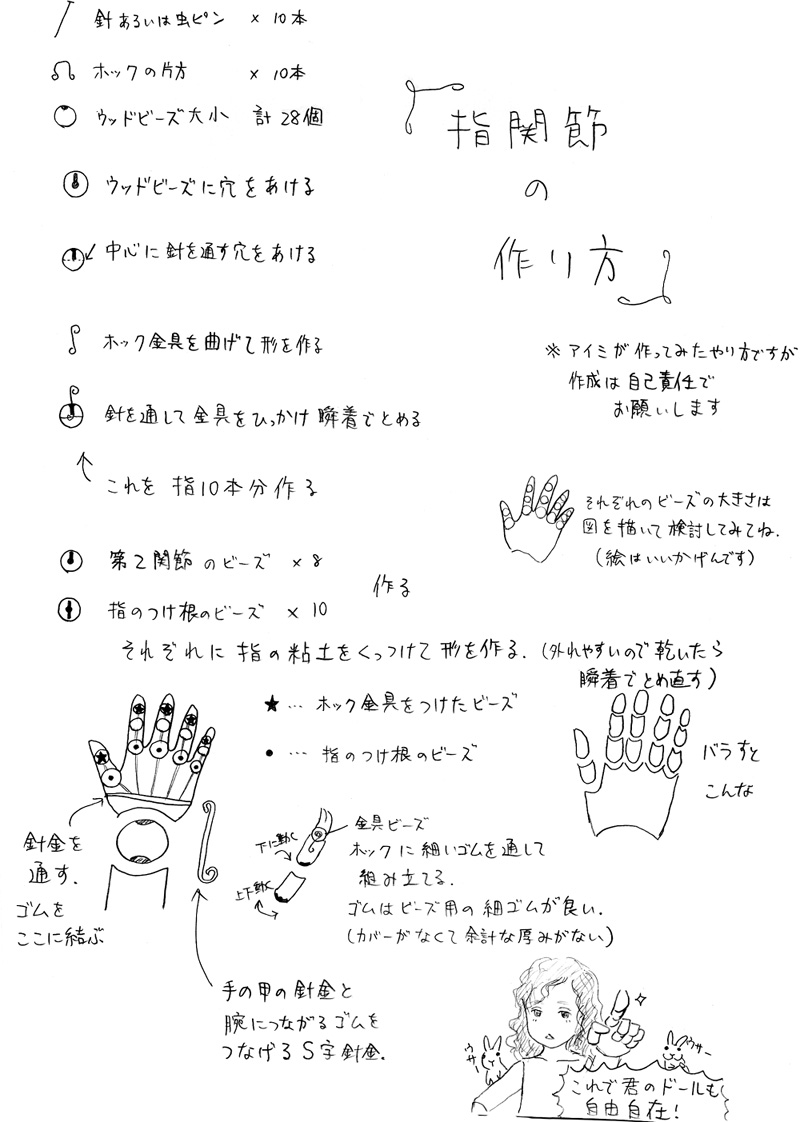 針あるいは虫ピン × 10本
ホックの片方 × 10本
ウッドビーズ大小 計28個
「指関節
の
作り方」
ウッドビーズに穴をあける
中心に針を通す穴をあける
ホック金具を曲げて形を作る
針を通して金具をひっかけ瞬着でとめる
これを 指10本分作る
※アイミが作ってみたやり方ですが
作成は自己責任で
お願いします
それぞれのビーズの大きさは
図を描いて検討してみてね.
(絵はいいかげんです)
第2関節のビーズ ×8
指のつけ根のビーズ ×10
作る
それぞれに指の粘土をくっつけて形を作る.(外れやすいので乾いたら
瞬着でとめ直す)
★… ホック金具をつけたビーズ
●… 指のつけ根のビーズ
バラすと
こんな
針金を
通す.
ゴムを
ここに結ぶ
下に動く
上下動く
金具ビーズ
ホックに細いゴムを通して
組み立てる.
ゴムはビーズ用の細ゴムが良い.
(カバーがなくて余計な厚みがない)
手の甲の針金と
腕につながるゴムを
つなげるS字針金.
ウサー
ウサー
これで君のドールも
自由自在!